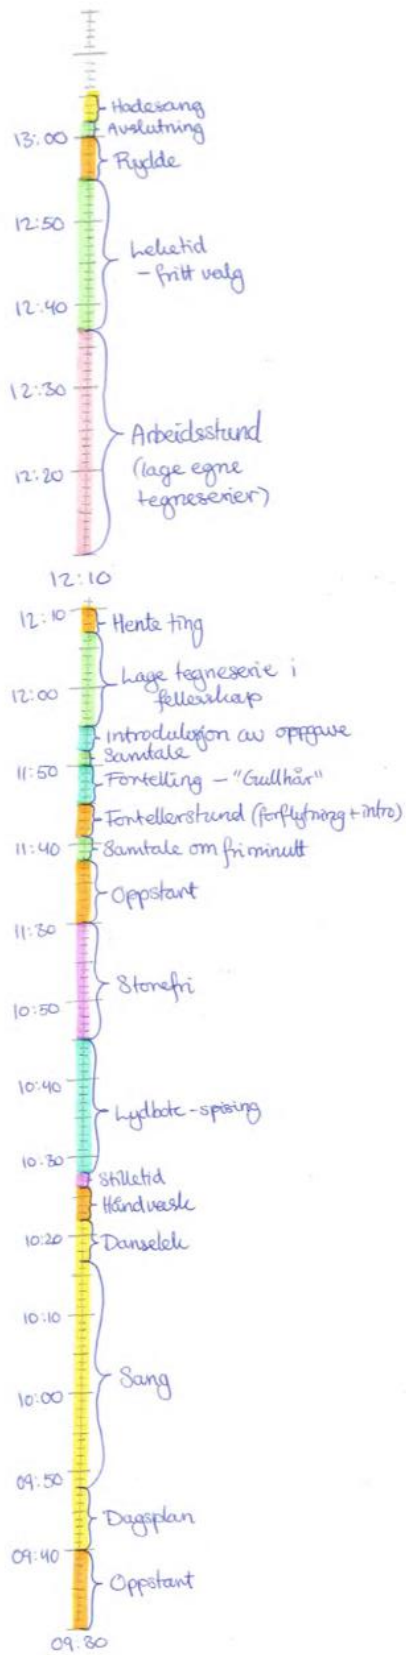 Hadesang
Avslutning
13:00
Rydde
12:50
Leketid
- fritt valg
12:40
12:30
Arbeidsstund
12:20
(lage egne
tegneserier)
12:10
12:10
Hente ting
Lage tegneserie i
12:00
fellesskap
Introduksjon av oppgave
Samtale
11:50
Fortelling - "Gullhår"
Fortellerstund (forflytning + intro)
11:40
Samtale om friminutt
Oppstart
11:30
Storefri
10:50
10:40
Lydbok - spising
10:30
Stilletid
Håndvask
10:20
Danselek
10:10
Sang
10:00
09:50
Dagsplan
09:40
Oppstart
09:30